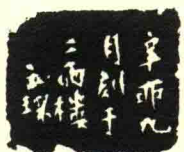 辛丣九
月刻于
二雨楼